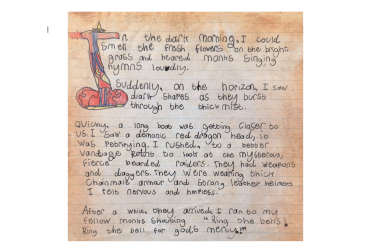 In the dark morning, I could
smell the fresh flowers on the bright
grass and heared monks singing
hymns loudly.
Suddenly, on the horizon, I saw
dark shapes as they burst
through the thick mist.
Quickly, a long boat was getting closer to
us I saw a demonic red dragon head, it
was petrifying. I rushed, to a better
vantage to look at the mysterous,
fierce bearded raiders. They had weapons
and daggers. They were wearing thick
Chainmail armour and strong leather helmets
I felt nervous and hopless.
After a while they arrived, I ran to my
fellow monks shouting "Ring the bells!
Ring the bell for god's mercy!"